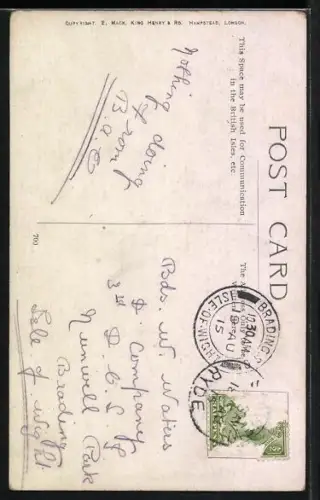 COPYRIGHT E. MACK, KING HENRY'S RD. HAMPSTEAD, LONDON.
POST CARD
This Space may be used for Communication
in the British Isles, etc.
Nothing
doing
700
Bds. W. Waters
D. Company
3rd D. C. L. I.
Nunwell Park
Brading
Isle of Wight
BRADING
ISLE-OF-WIGHT
AU
15
RYDE